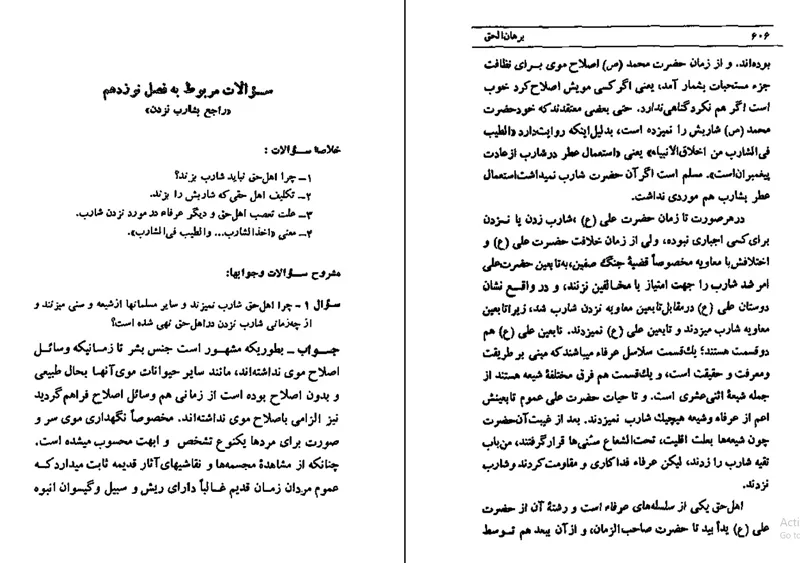 سؤالات مربوط به فصل نوزدهم
«راجع بشارب نزدن»
خلاصهٔ سؤالات :
۱ـ چرا اهل‌حق نباید شارب بزند؟
۲ـ تکلیف اهل حقی‌که شاربش را بزند.
۳ـ علت تعصب اهل‌حق و دیگر عرفاء در مورد نزدن شارب.
۴ـ معنی «اخذالشارب... والطیب فی‌الشارب».
مشروح سؤالات وجوابها:
سؤال ۱ - چرا اهل‌حق شارب نمیزند و سایر مسلمانها ازشیعه و سنی میزنند و
از چه‌زمانی شارب نزدن در‌اهل‌حق نهی شده است؟
جواب ـ بطوریکه مشهور است جنس بشر تا زمانیکه وسائل
اصلاح موی نداشته‌اند، مانند سایر حیوانات موی‌آنها بحال طبیعی
و بدون اصلاح بوده است از زمانی هم وسائل اصلاح فراهم‌گردید
نیز الزامی باصلاح موی نداشته‌اند. مخصوصاً نگهداری موی سر و
صورت برای مردها یکنوع تشخص و ابهت محسوب میشده است.
چنانکه از مشاهدهٔ مجسمه‌ها و نقاشیهای‌آثار قدیمه ثابت میدارد‌که
عموم مردان زمان قدیم غالباً دارای ریش و سبیل و گیسوان انبوه
۶۰۶ برهان‌الحق
بوده‌اند. و از زمان حضرت محمد (ص) اصلاح موی برای نظافت
جزء مستحبات بشمار آمد، یعنی اگر‌کسی مویش اصلاح‌کرد خوب
است اگر هم نکرد‌گناهی‌ندارد. حتی بعضی معتقدند‌که خود‌حضرت
محمد (ص) شاربش را نمیزده است، بدلیل‌اینکه روایت‌دارد «الطیب
فی‌الشارب من اخلاق‌الانبیاء» یعنی «استعمال عطر در‌شارب از‌عادت
پیغمبران‌است». مسلم است اگر‌آن حضرت شارب نمیداشت‌استعمال
عطر بشارب هم موردی نداشت.
درهرصورت تا زمان حضرت علی (ع) ،شارب زدن یا نزدن
برای‌کسی اجباری نبوده، ولی از زمان خلافت حضرت علی (ع) و
اختلافش‌با معاویه مخصوصاً قضیهٔ جنگ صفین،به‌تابعین حضرت‌علی
امر شد شارب را جهت امتیاز با مخالفین نزنند، و در واقع نشان
دوستان علی (ع) درمقابل‌تابعین معاویه نزدن شارب شد، زیرا‌تابعین
معاویه شارب میزدند و تابعین علی (ع) نمیزدند. تابعین علی (ع) هم
دوقسمت هستند؛ یك‌قسمت سلاسل عرفاء میباشند‌که مبنی بر طریقت
ومعرفت و حقیقت است، و یك‌قسمت هم فرق مختلفهٔ شیعه هستند از
جمله شیعهٔ اثنی‌عشری است. و تا حیات حضرت علی عموم تابعینش
اعم از عرفاء وشیعه هیچیك شارب نمیزدند. بعد از غیبت‌آن‌حضرت
چون شیعه‌ها بعلت اقلیت، تحت‌الشعاع سنّی‌ها قرار‌گرفتند، من‌باب
تقیه شارب را زدند، لیکن عرفاء فداکاری و مقاومت‌کردند وشارب
نزدند.
اهل‌حق یکی از سلسله‌های عرفاء است و رشتهٔ آن از حضرت
علی (ع) یداً بید تا حضرت صاحب‌الزمان، و از‌آن ببعد هم توسط
Acti
Go to